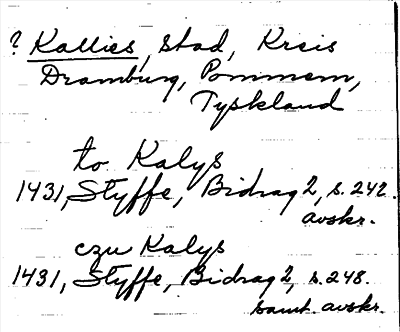 ? Kallies, stad, Kreis
Dramburg, Pommern,
Tyskland
to Kalys
1431, Styffe, Bidrag 2, s. 242.
avskr.
czu Kalys
1431, Styffe, Bidrag 2, s. 248.
samt. avskr.